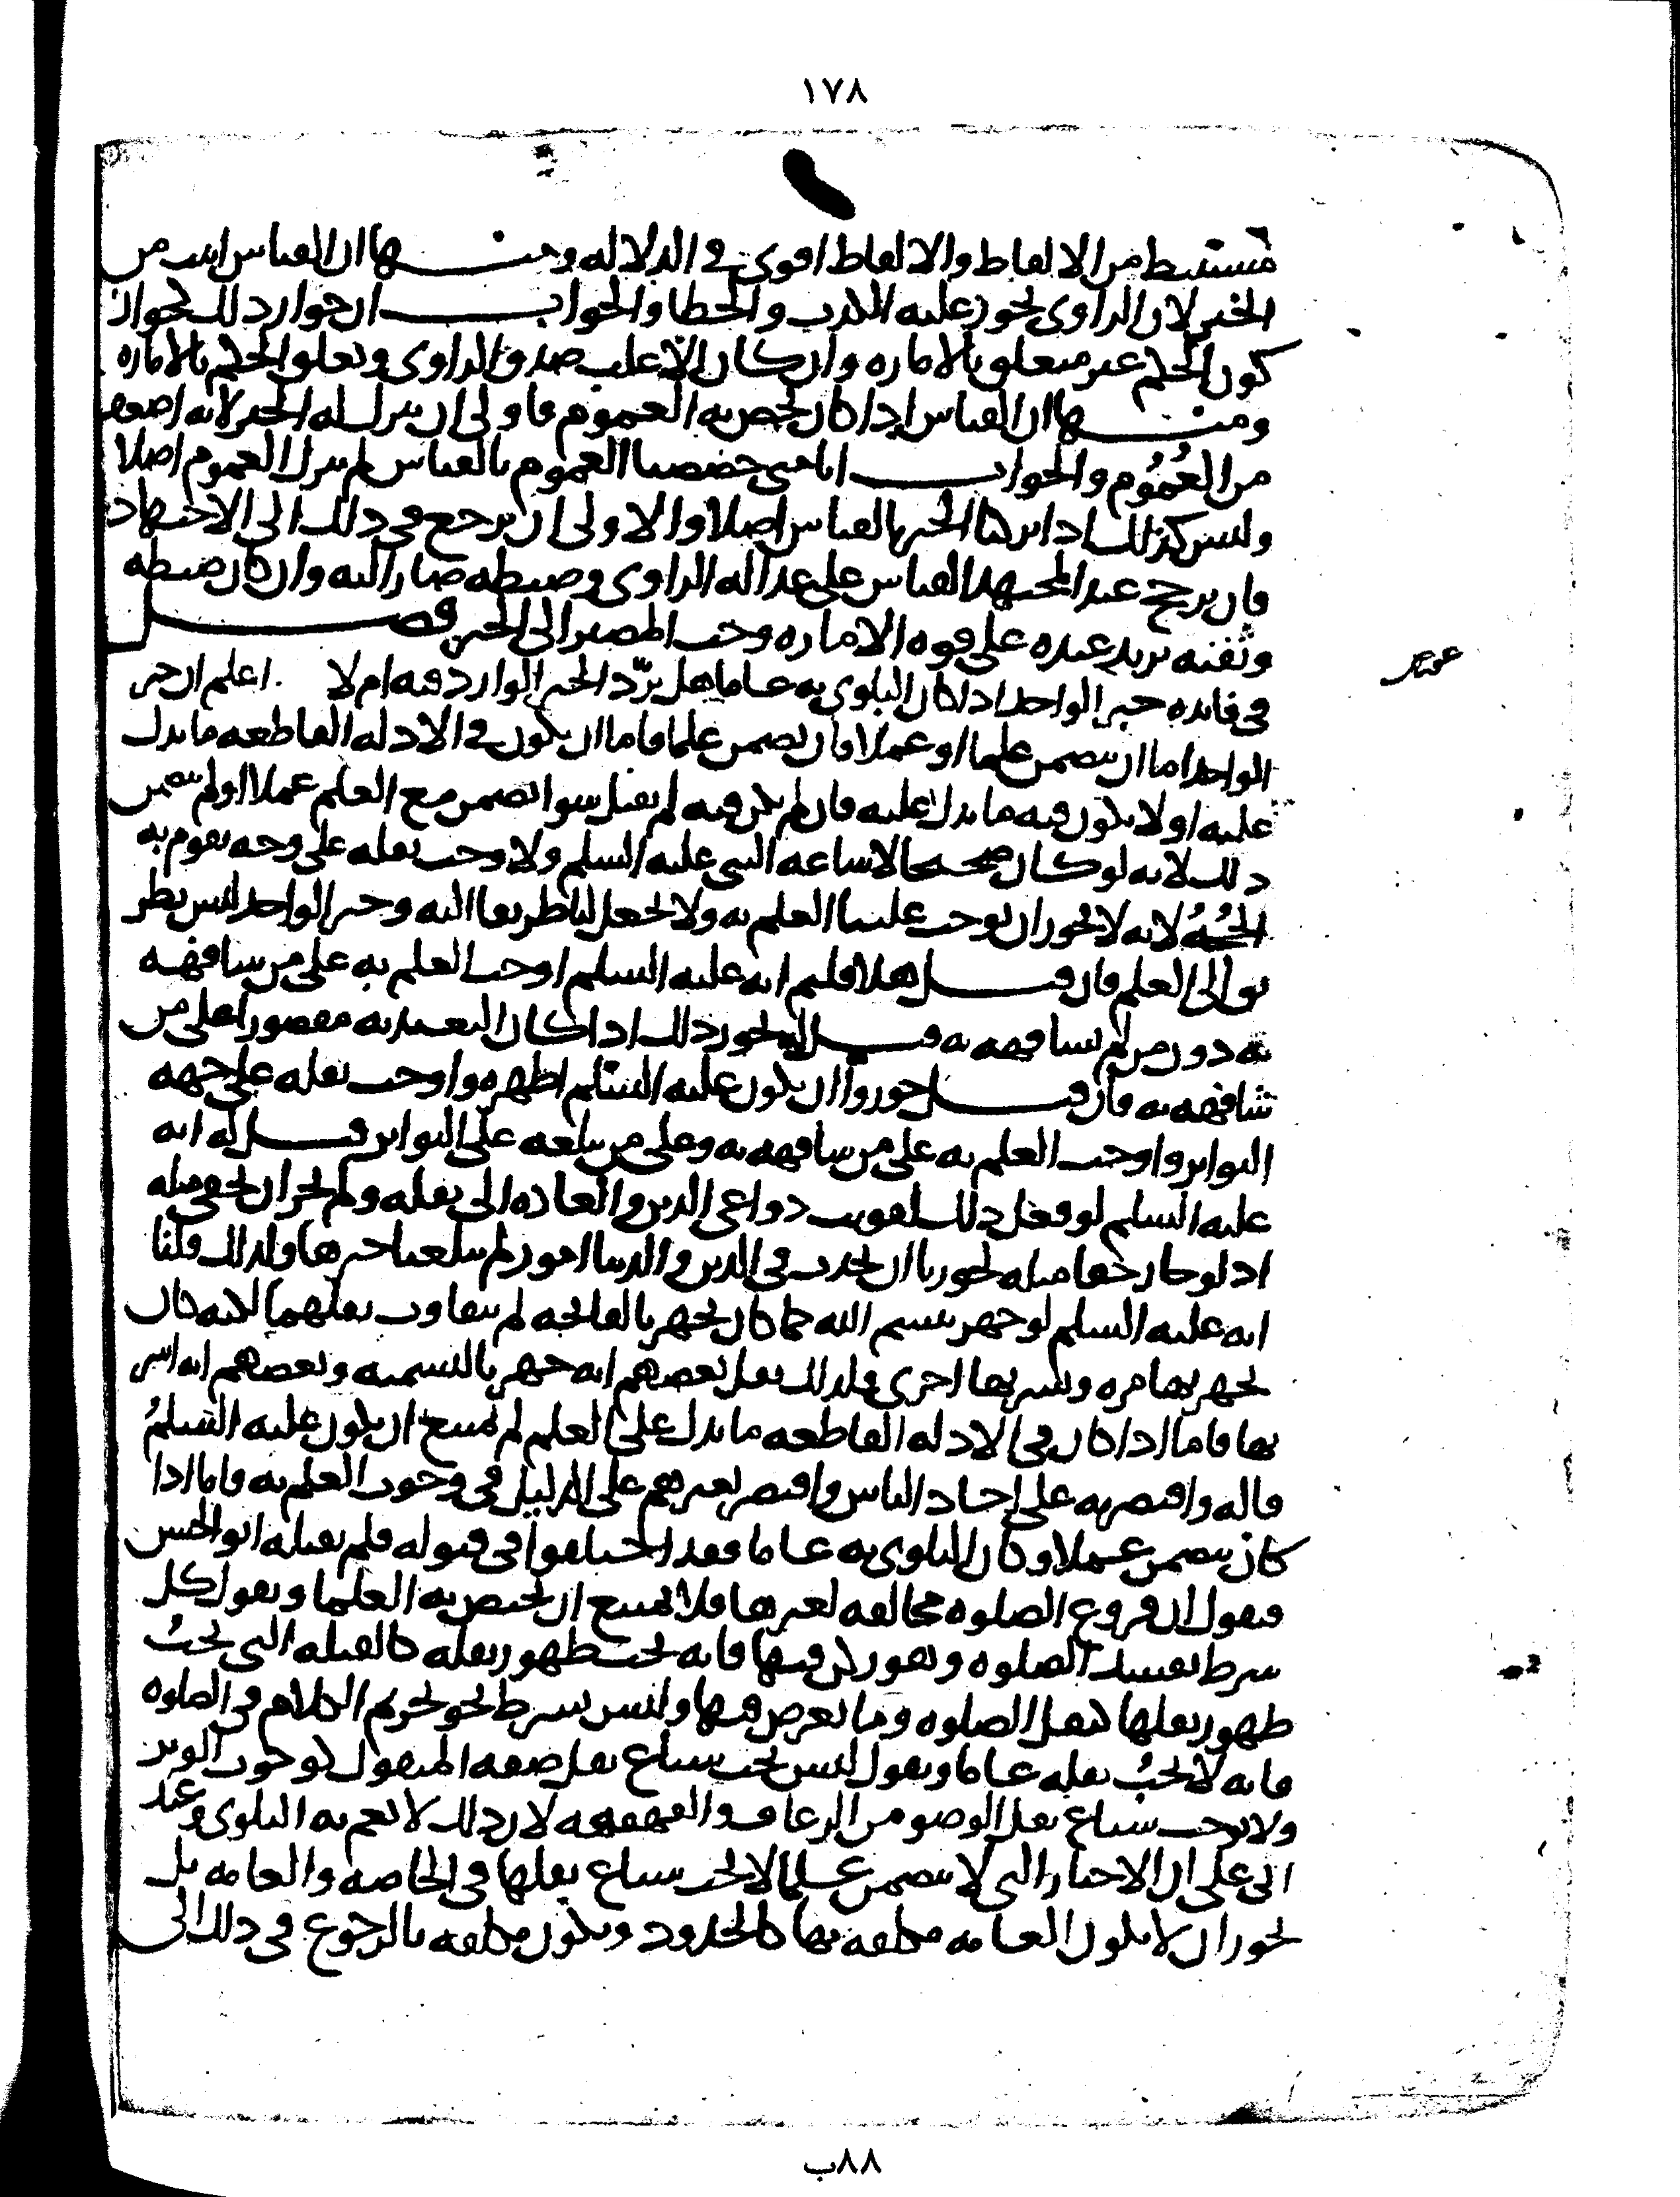 ١٧٨
مستنبط من الالفاظ والالفاظ اقوى في الدلاله ومنها ان القياس اثبت من
الخبر لان الراوى يجوز عليه الكذب والخطا والجواب ان جواز ذلك كجواز
كون الحكم غير متعلق بالاماره وان كان الاغلب صدق الراوى وتعلق الحكم بالاماره
ومنها ان القياس اذا كان يخص به العموم فاولى ان يترك له الخبر لانه اضعف
من العموم والجواب انا متى خصصنا العموم بالقياس لم نترك العموم اصلا
وليس كذلك اذا تركنا الخبر بالقياس اصلا والاولى ان يرجع في ذلك الى الاجتهاد
فان ترجح عند المجتهد القياس على عداله الراوى وضبطه صار اليه وان كان ضبطه
وثقته تزيد عنده على قوه الاماره وجب المصير الى الخبر فصل
في فائده خبر الواحد اذا كان البلوى به عاما هل يرد الخبر الوارد فيه ام لا . اعلم ان خبر
الواحد اما ان يتضمن علما او عملا فان تضمن علما فاما ان يكون في الادله القاطعه ما يدل
عليه او لا يكون فيه ما يدل عليه فان لم يكن فيه لم يقبل سوا تضمن مع العلم عملا او لم يتضمن
ذلك لانه لو كان صحيحا لاشاعه النبي عليه السلم ولاوجب نقله على وجه تقوم به
الحجه لانه لا يجوز ان يوجب علينا العلم به ولا يجعل لنا طريقا اليه وخبر الواحد ليس بطر
يق الى العلم فان قيل هلا قلتم انه عليه السلم اوجب العلم به على من شافهه
به دون من لم يشافهه به قيل انه يجوز ذلك اذا كان التعبد به مقصورا على من
شافهه به فان قيل جوزوا ان يكون عليه السلم اظهره واوجب نقله على جهه
التواتر واوجب العلم به على من شافهه به وعلى من بلغه على التواتر قيل له انه
عليه السلم لو فعل ذلك لقويت دواعى الدين والعاده الى نقله ولم يجز ان يخفى مثله
اذ لو جاز خفا مثله لجوزنا ان يحدث في الدين والدنيا امور لم يبلغنا خبرها ولذلك قلنا
انه عليه السلم لو جهر ببسم الله كما كان يجهر بالفاتحه لم يتفاوت نقلهما لكنه كان
يجهر بها مره ويسر بها اخرى فلذلك نقل بعضهم انه جهر بالتسميه وبعضهم انه اسر
بها فاما اذا كان في الادله القاطعه ما يدل على العلم لم يمتنع ان يكون عليه السلم
قاله واقتصر به على احاد الناس واقتصر بغيرهم على الدليل في وجوب العلم به فاما اذا
كان يتضمن عملا وكان البلوى به عاما فقد اختلفوا في قبوله فلم يقبله ابو الحسن
فيقول ان فروع الصلوه مخالفه لغيرها فلا يمتنع ان يختص به العلما ويقول كل
شرط يفسد الصلوه وهو ركن فيها فانه يجب ظهور نقله كالقبله التي يجب
ظهور نقلها كنقل الصلوه وما يعرض فيها وليس بشرط نحو تحريم الكلام في الصلوه
فانه لا يجب نقله عاما ويقول ليس يجب شياع نقل صفه المنقول كوجوب الوتر
ولا يوجب شياع نقل الوضو من الرعاف والقهقهه لان ذلك لا تعم به البلوى وعند
ابى على ان الاخبار التي لا تتضمن علما لا يجب شياع نقلها في الخاصه والعامه بل
يجوز ان لا يكون العامه مكلفه بها كالحدود ويكون مكلفه بالرجوع في ذلك الى
٨٨ب